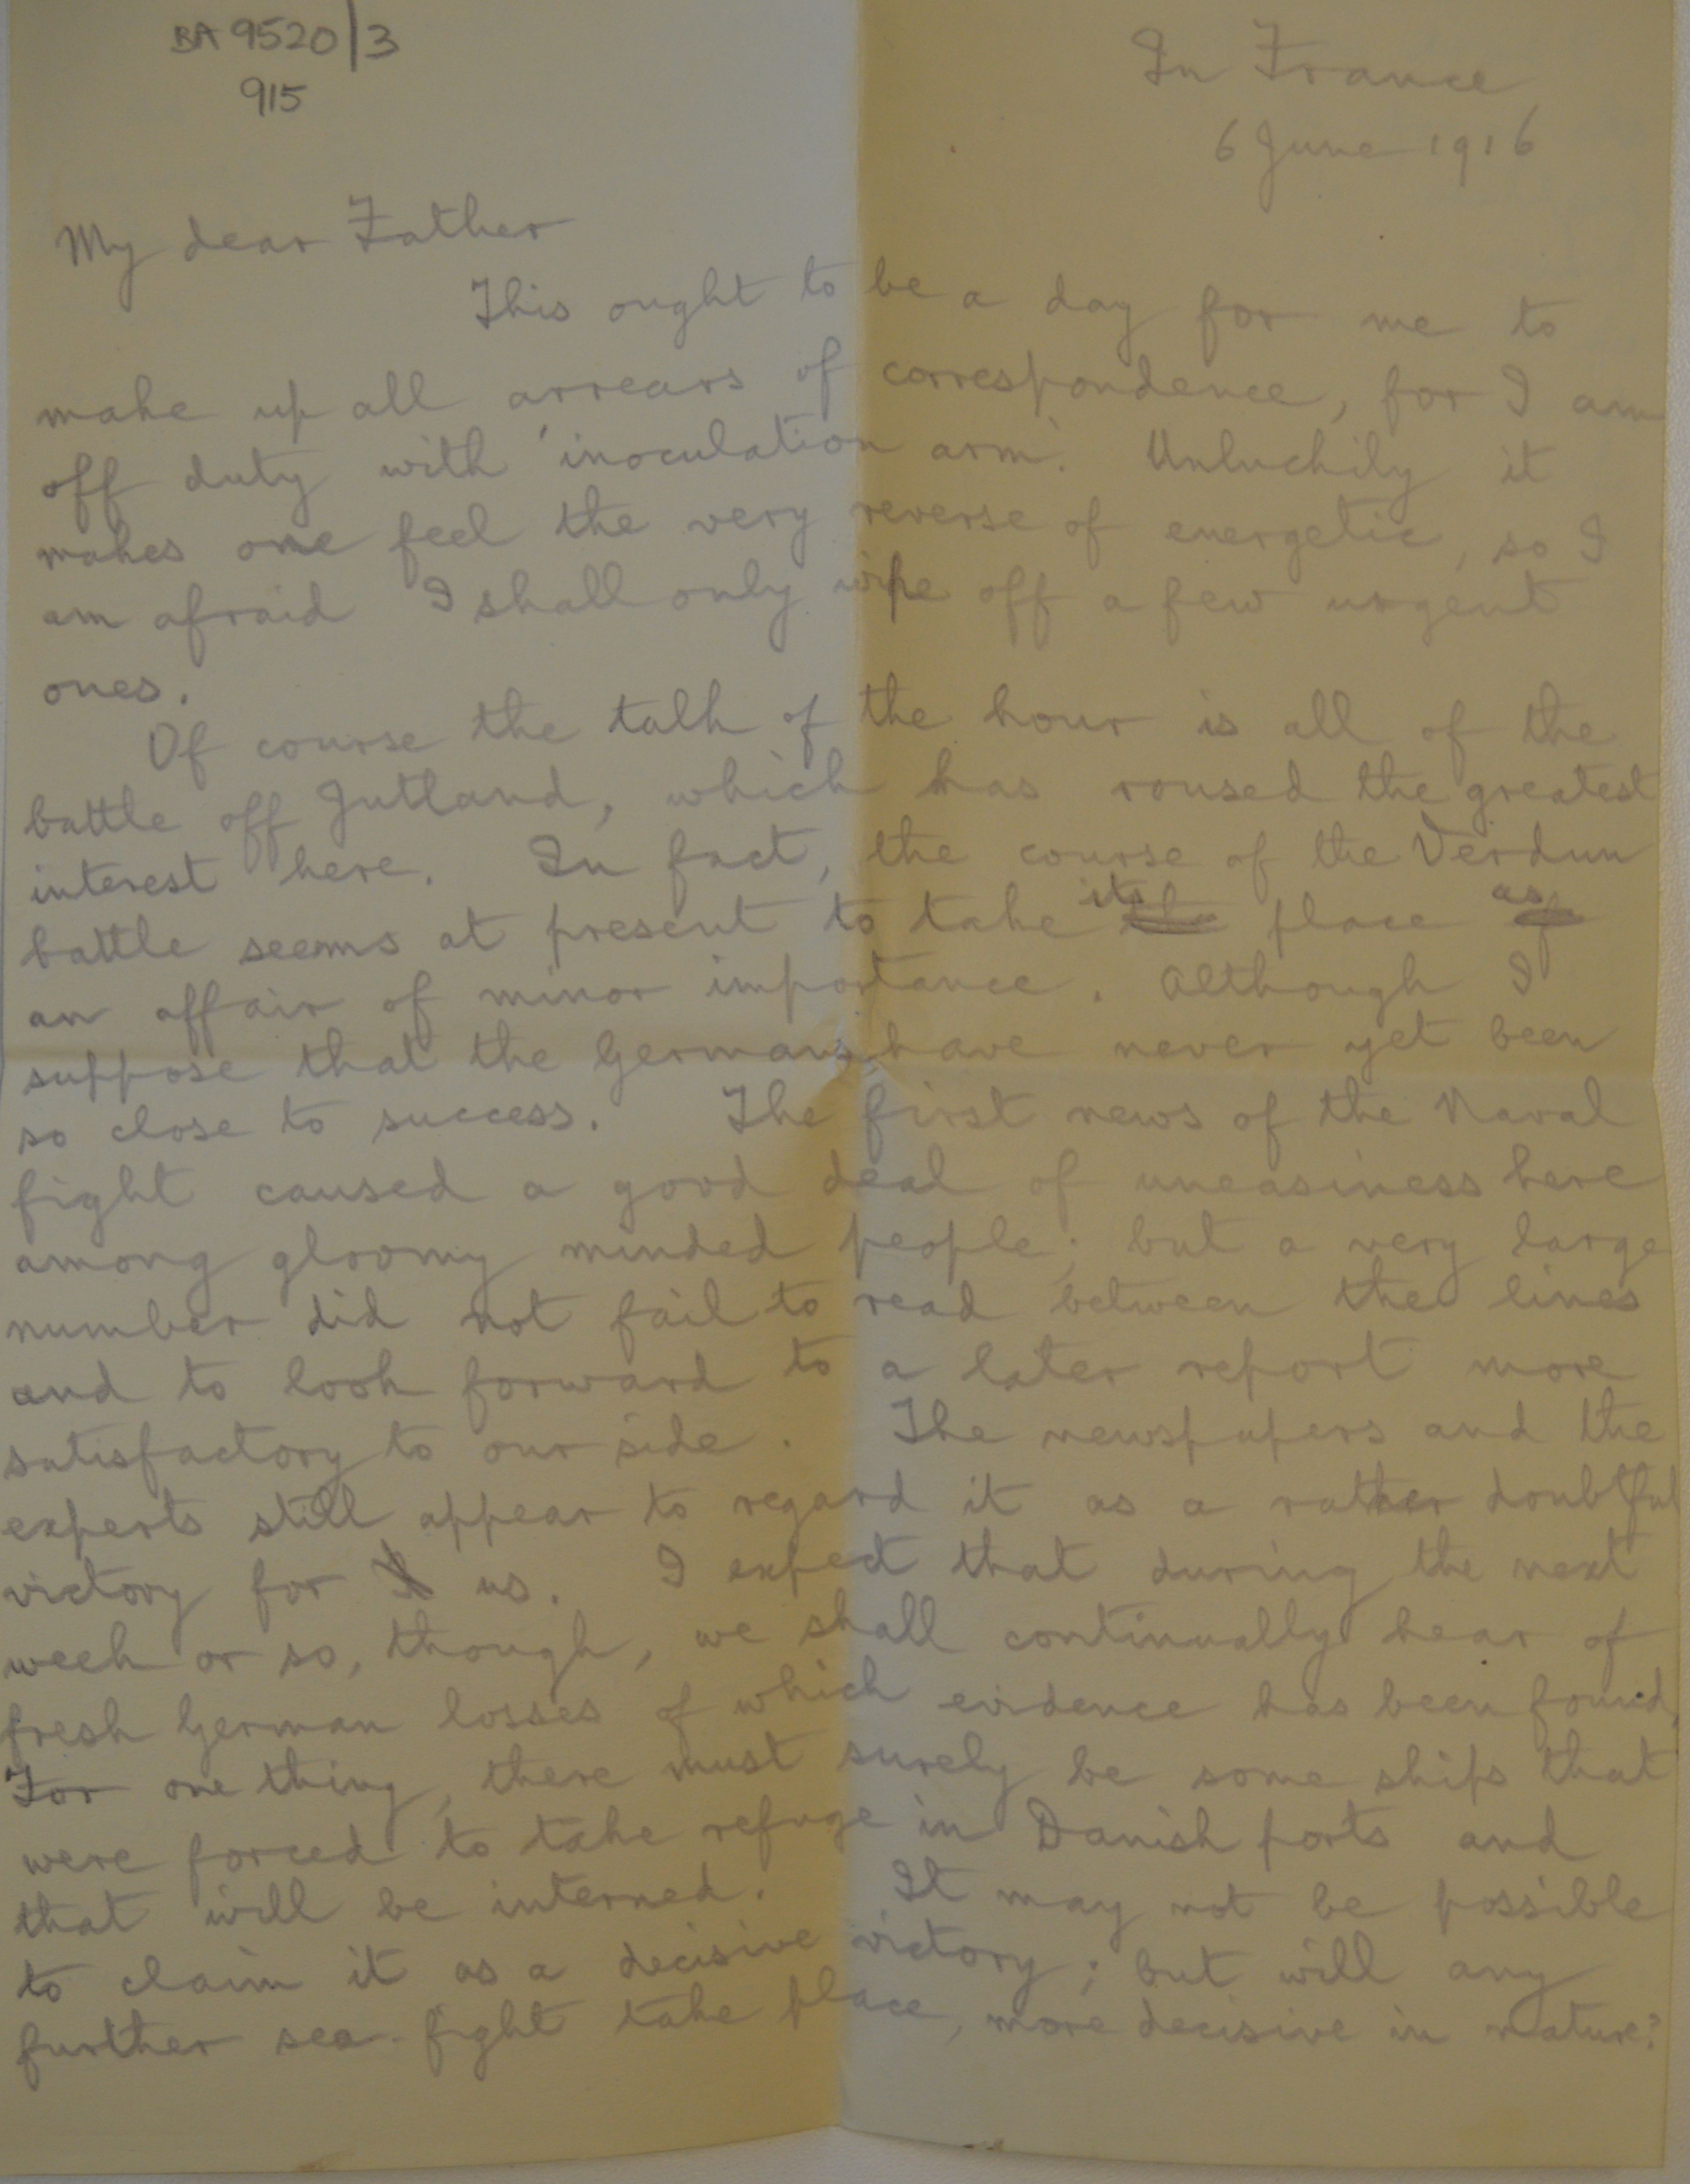 BA 9520/3
915
In France
6 June 1916
My dear Father
This ought to be a day for me to
make up all arrears of correspondence, for I am
off duty with 'inoculation arm'. Unluckily it
makes one feel the very reverse of energetic, so I
am afraid I shall only wipe off a few urgent
ones.
Of course the talk of the hour is all of the
battle off Jutland, which has roused the greatest
interest here. In fact, the course of the Verdun
battle seems at present to take its place as
an affair of minor importance. Although I
suppose that the Germans have never yet been
so close to success. The first news of the Naval
fight caused a good deal of uneasiness here
among gloomy minded people; but a very large
number did not fail to read between the lines
and to look forward to a later report more
satisfactory to our side. The newspapers and the
experts still appear to regard it as a rather doubtful
victory for us. I expect that during the next
week or so, though, we shall continually hear of
fresh German losses of which evidence has been found.
For one thing, there must surely be some ships that
were forced to take refuge in Danish ports and
that will be interned. It may not be possible
to claim it as a decisive victory; but will any
further sea-fight take place, more decisive in nature?